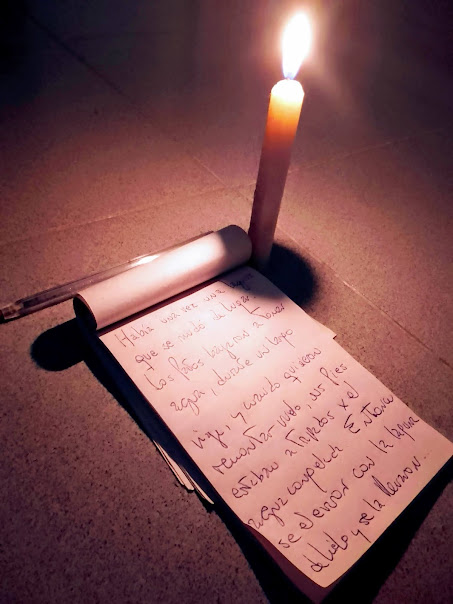 Había una vez una
que se mudó de lugar.
Los patos bajaron a tomar
agua, durante un largo
viaje, y cuando quisieron
remontar vuelo, sus pies
estaban atrapados x el
agua congelada Entonces
se elevaron con la laguna
d hielo y se la llevaron...